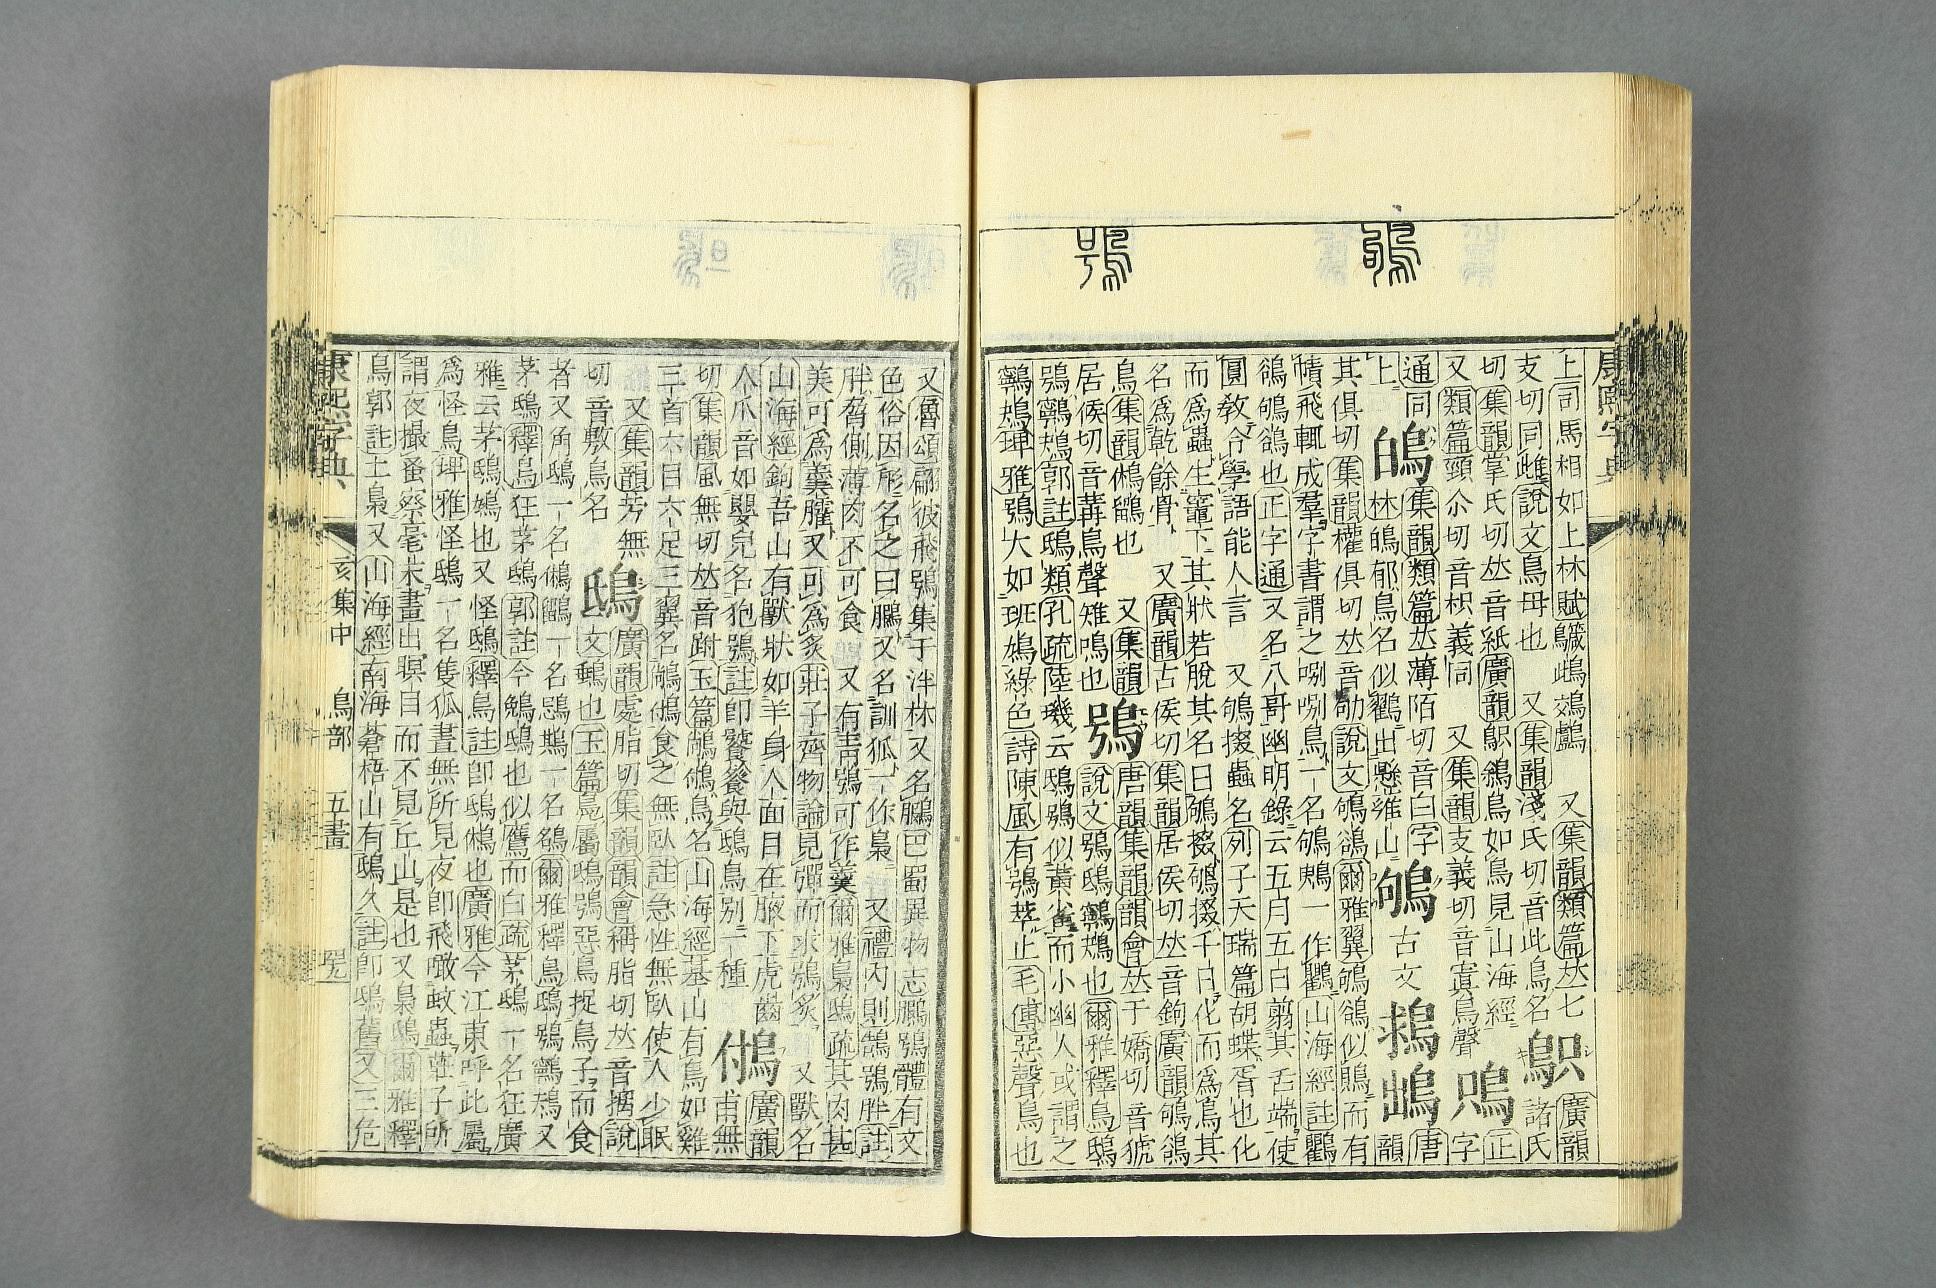 康熙字典
上司馬相如上林賦鱵鴜鵁鸕 又集韻類篇𠀤七
支切同雌說文鳥母也 又集韻淺氏切音此鳥名 廣韻諸氏
切集韻掌氏切𠀤音紙廣韻鴃鵨鳥如鳥見山海經 正字
又類篇頸尒切音枳義同 又集韻支義切音寘鳥聲
通同 集韻類篇𠀤薄陌切音白字 古文 唐韻
上林鴝郁鳥名似鸛出懸雍山
其俱切集韻權俱切𠀤音劬說文鴝鵒爾雅翼鴝鵒似鵙而有
幘飛輒成羣字書謂之唎唎鳥一名鴝鷍一作鸜山海經註鸜
鵒鴝鵒也正字通又名八哥幽明錄云五月五日剪其舌端使
圓敎令學語能人言 又鴝掇蟲名列子天瑞篇胡蝶胥也化
而爲蟲生竈下其狀若脫其名曰鴝掇鴝掇千日化而爲鳥其
名爲乾餘骨 又廣韻古侯切集韻居侯切𠀤音鉤廣韻鴝鵒
鳥集韻鵂鶹也 又集韻 鴞 唐韻集韻韻會𠀤于嬌切音猇
居侯切音冓鳥聲雉鳴也 說文鴞鴟鸋鴂也爾雅釋鳥鴟
鴞鸋鴂郭註鴟類孔疏陸璣云鴟鴞似黃雀而小幽人或謂之
鸋鴂埤雅鴞大如班鳩綠色詩陳風有鴞萃止毛傳惡聲鳥也
又魯頌翩彼飛鴞集于泮林又名鵩巴蜀異物志鵩鴞體有文
色俗因形名之曰鵩又名訓狐一作梟 又禮內則鵠鴞胖註
胖脅側薄肉不可食 又有靑鴞可作羹爾雅梟鴟疏其肉甚
美可爲羹臛又可爲炙莊子齊物論見彈而求鴞炙 又獸名
山海經鉤吾山有獸狀如羊身人面目在腋下虎齒 廣韻
人爪音如嬰兒名狍鴞註卽饕餮與鴟鳥別一種 甫無
切集韻風無切𠀤音跗玉篇鵂鳥名山海經基山有鳥如雞
三首六目六足三翼名食之無臥註急性無臥使人少眠
又集韻芳無 鴟 廣韻處脂切集韻韻會稱脂切𠀤音摛說
切音敷鳥名 文䳀也玉篇鳶屬鴟鴞惡鳥捉鳥子而食
者又角鴟一名鵂鶹一名䳢鵋一名鵅爾雅釋鳥鴟鴞鸋鴂又
茅鴟釋鳥狂茅鴟郭註今鵵鴟也似鷹而白疏茅鴟一名狂廣
雅云茅鴟鳩也又怪鴟釋鳥註卽鴟鵂也廣雅今江東呼此屬
爲怪鳥埤雅怪鴟一名隻狐晝無所見夜卽飛噉蚊蟲莊子所
謂夜撮蚤察毫末晝出瞑目而不見丘山是也又梟鴟爾雅釋
鳥郭註土梟又山海經南海蒼梧山有鴟久註卽鴟舊又三危
康熙字典 亥集中 鳥部 五畫